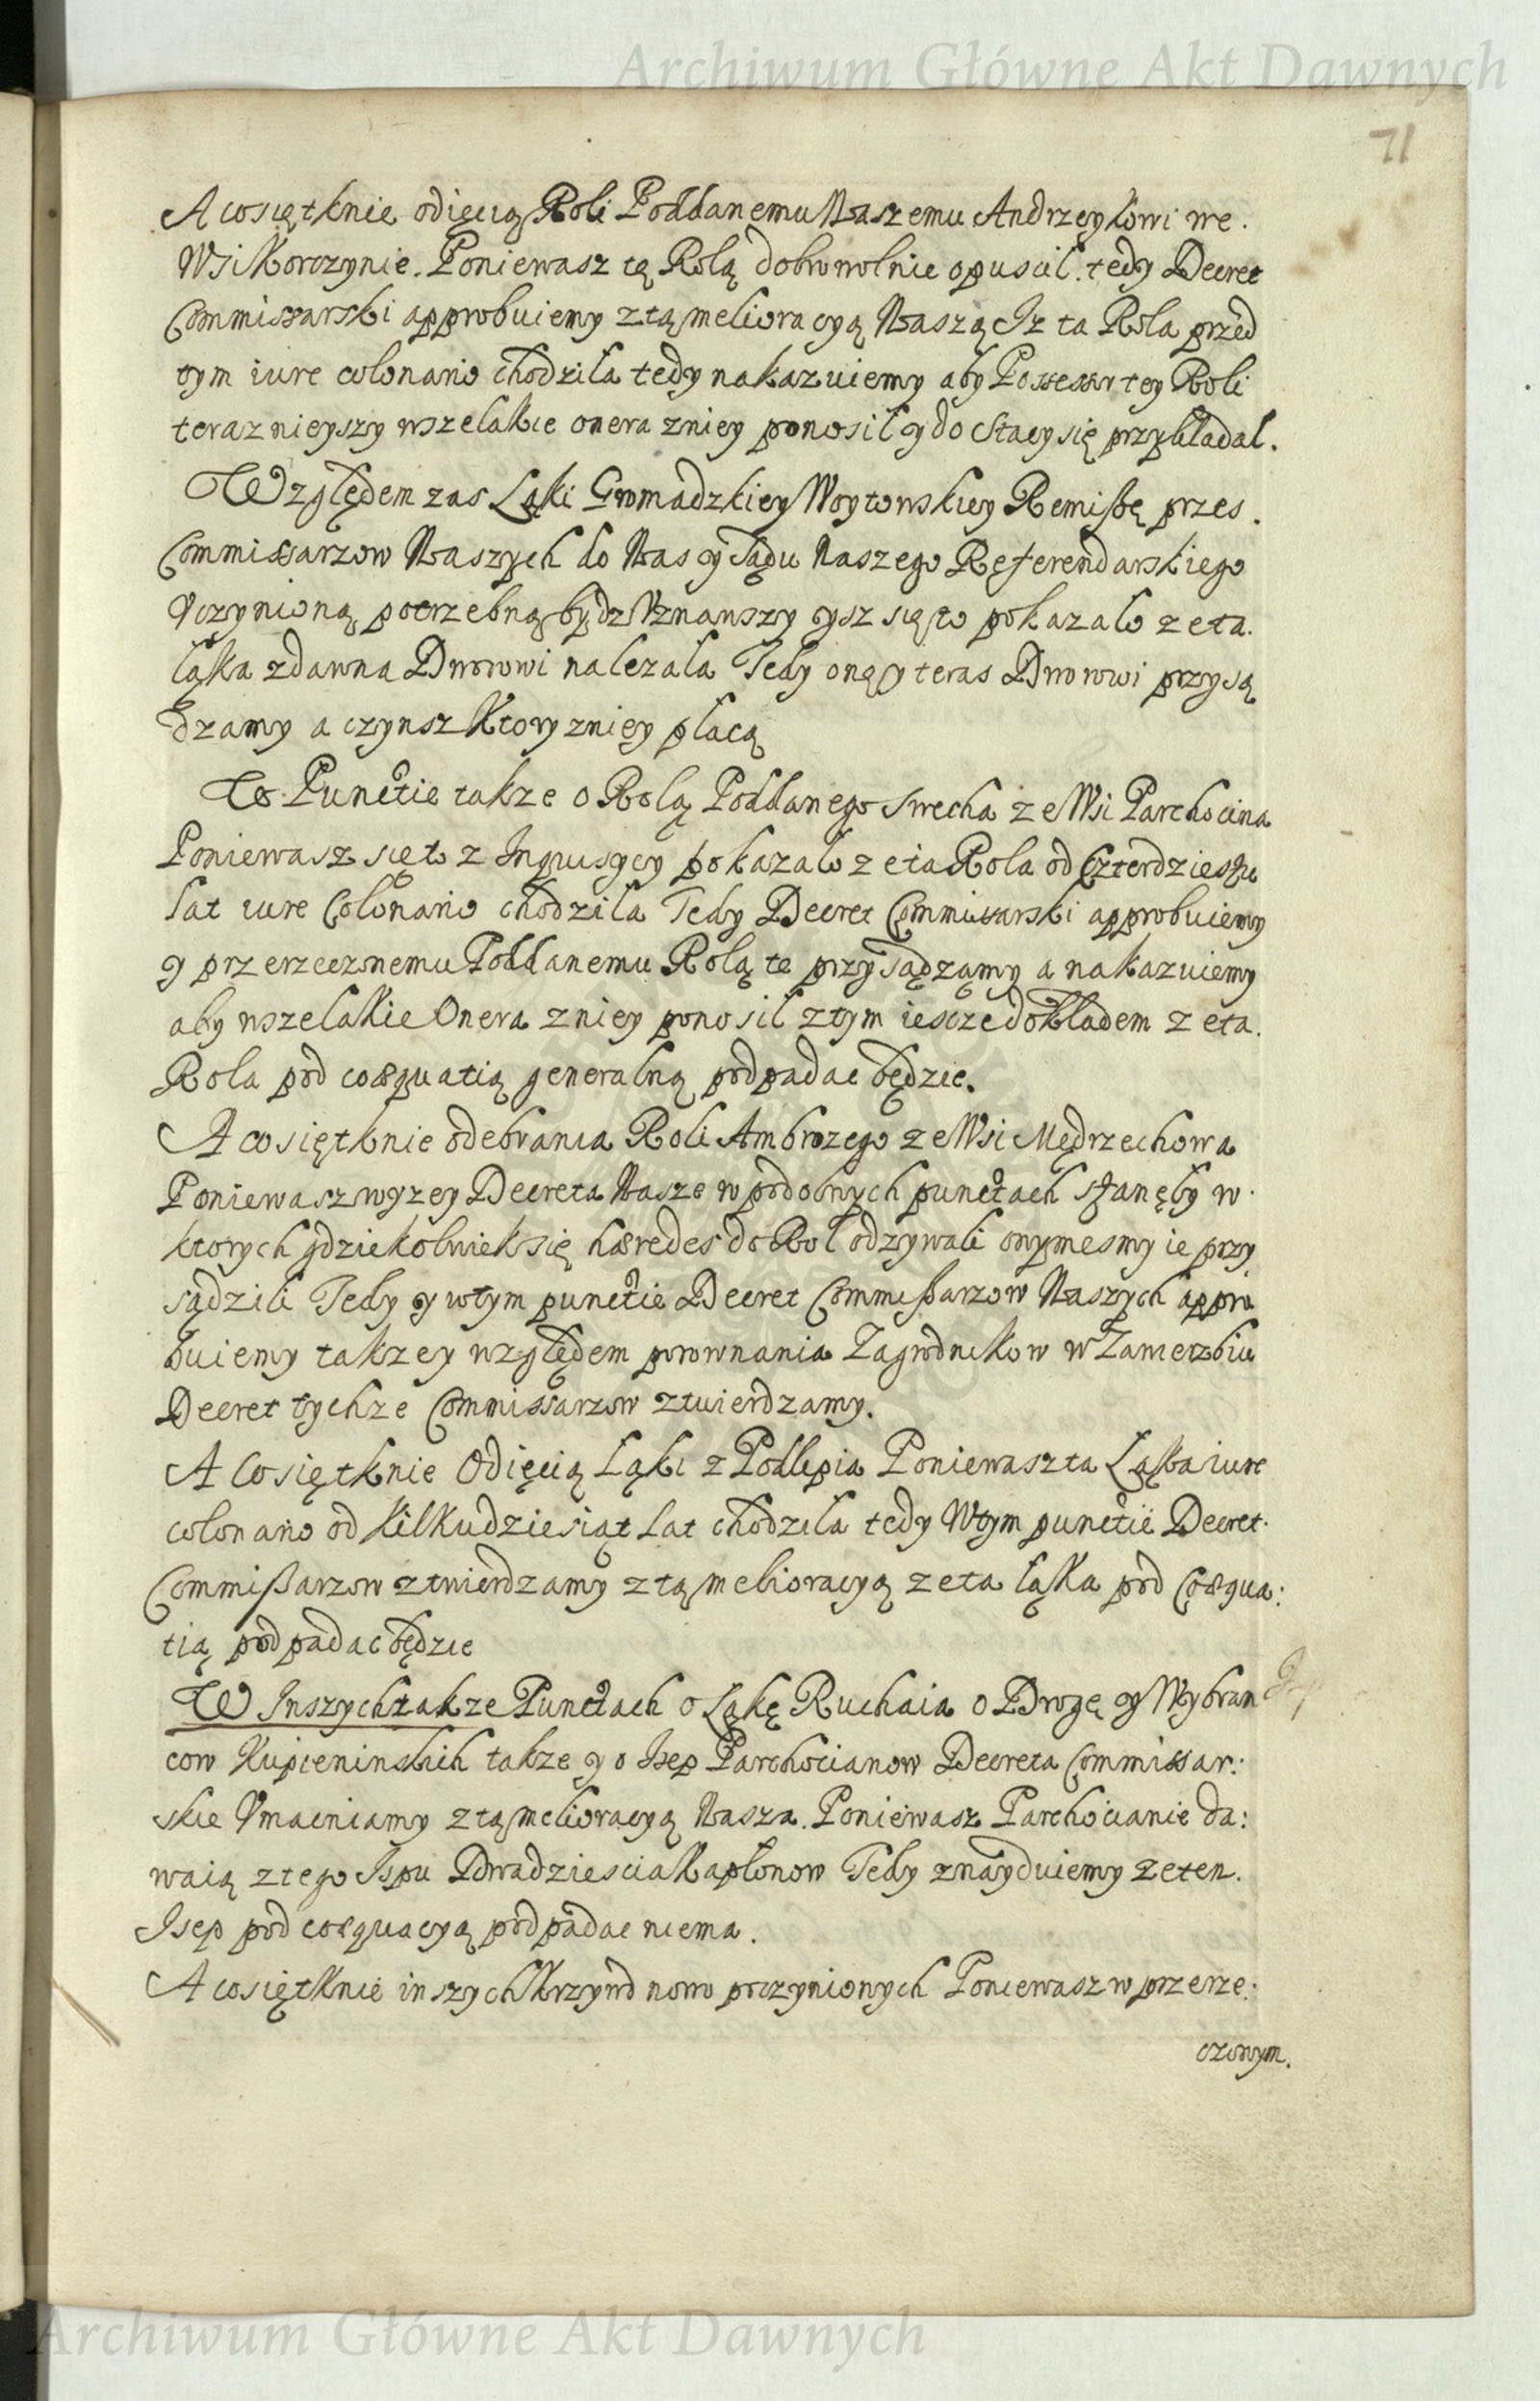 Archiwum Główne Akt Dawnych
71
A co się tknie odięcią Roli Poddanemu Naszemu Andrzeykowi we.
Wsi Korczynie. Poniewasz tę Rolą dobrowolnie opuscil. tedy Decret
Commissarski approbuiemy z tą melioracyą Naszą Iz ta Rola przed
tym iure colonario chodzila tedy nakazuiemy aby Possessor tey Roli
teraznieyszy wszelakie onera zniey ponosil y do Stacy się przykladal.
Względem zas Ląki Gromadzkiey Woytowskiey Remissę przes.
Commissarzow Naszych do Nas y Sądu Naszego Referendarskiego
Vczynioną potrzebną bydz Vznawszy ysz się to pokazalo ze ta.
ląka zdawna Dworowi nalezala Tedy onę y teras Dworowi przysą
dzamy a czynsz Ktory zniey placą
W Punctie takze o Rolą Poddanego Swecha ze Wsi Parchocina
Poniewasz się to z Inquisycy pokazalo ze ta Rola od Czterdziestu
lat iure Colonario chodzila Tedy Decret Commissarski approbuiemy
y przerzeczonemu Poddanemu Rolą te przysądzamy a nakazuiemy
aby wszelakie Onera zniey ponosil z tym iescze dokladem ze ta.
Rola pod coæquatią generalną podpadac będzie.
A co się tknie odebrania Roli Ambrozego ze Wsi Mędrzechowa
Poniewasz wyzey Decreta Nasze w podobnych punctach stanęly w.
ktorych gdziekolwiek się hæredes do Rol odzywali onymesmy ie przy
sądzili Tedy y w tym punctie Decret Commissarzow Naszych appro
buiemy takzey względem porownania Zagrodnikow w Zamerzbiu
Decret tychze Commissarzow ztwierdzamy.
A Co się tknie Odięcią Ląki z Podlipia Poniewasz ta Ląka iure
colonario od Kilkudziesiąt Lat chodzila tedy W tym punctie Decret.
Commissarzow ztwierdzamy z tą melioracyą ze ta ląka pod Coæqua:
tią podpadac będzie
W Inszych takze Punctach o Ląkę Ruchaia o Drogę y Wybran
cow Kupieninskich takze y o Isep Parchocianow Decreta Commissar:
skie Vmacniamy z tą melioracyą Nasza. Poniewasz Parchocianie da:
waią z tego Ispu Dwadziescia Kaplonow Tedy znayduiemy ze ten.
Isep pod coæquacyą podpadac niema.
A co się tknie inszych Krzywd nowo poczynionych Poniewasz w przerze:
czonym.
Archiwum Główne Akt Dawnych